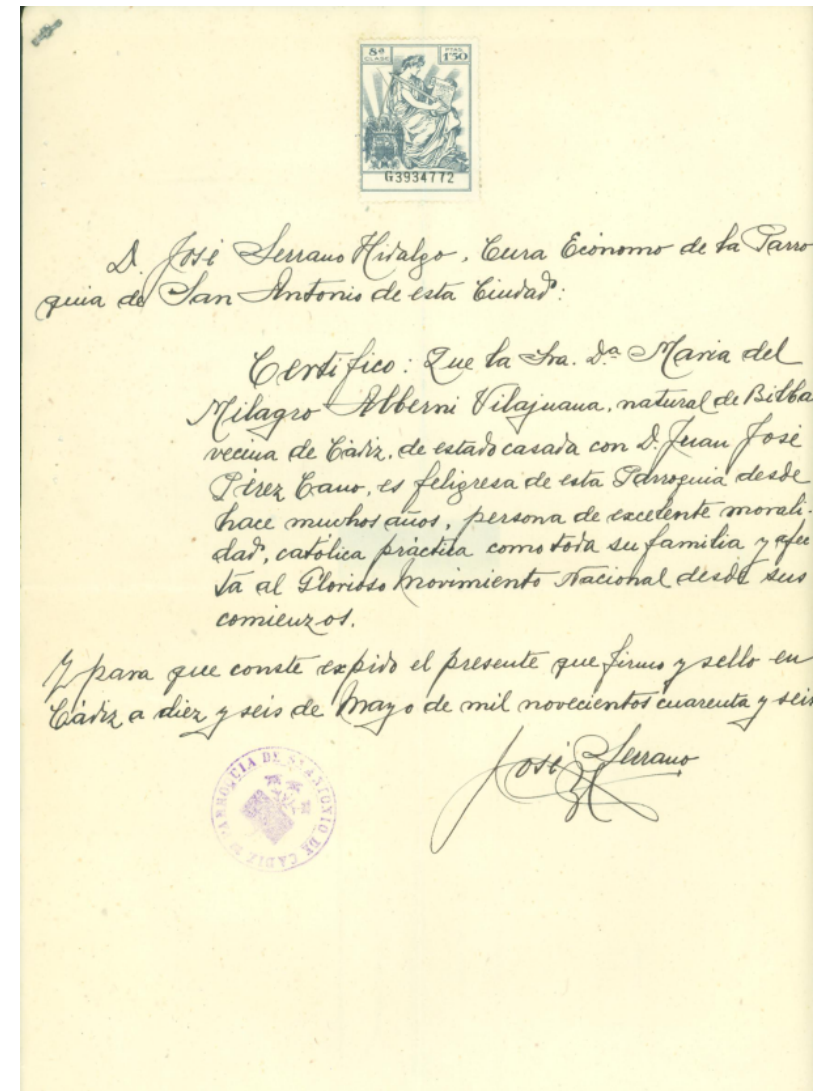 8ª CLASE
PTAS. 1'50
G3934772
D. José Serrano Hidalgo, Cura Ecónomo de la Parro
quia de San Antonio de esta Ciudad:
Certifico: Que la Sra. Dª Maria del
Milagro Alberni Vilajuana, natural de Bilba
vecina de Cádiz, de estado casada con D. Juan José
Pérez Cano, es feligresa de esta Parroquia desde
hace muchos años, persona de excelente morali-
dad, católica práctica como toda su familia y afec
ta al Glorioso Movimiento Nacional desde sus
comienzos.
Y para que conste expido el presente que firmo y sello en
Cádiz a diez y seis de Mayo de mil novecientos cuarenta y seis
José Serrano
PARROQUIA DE SAN ANTONIO DE CADIZ